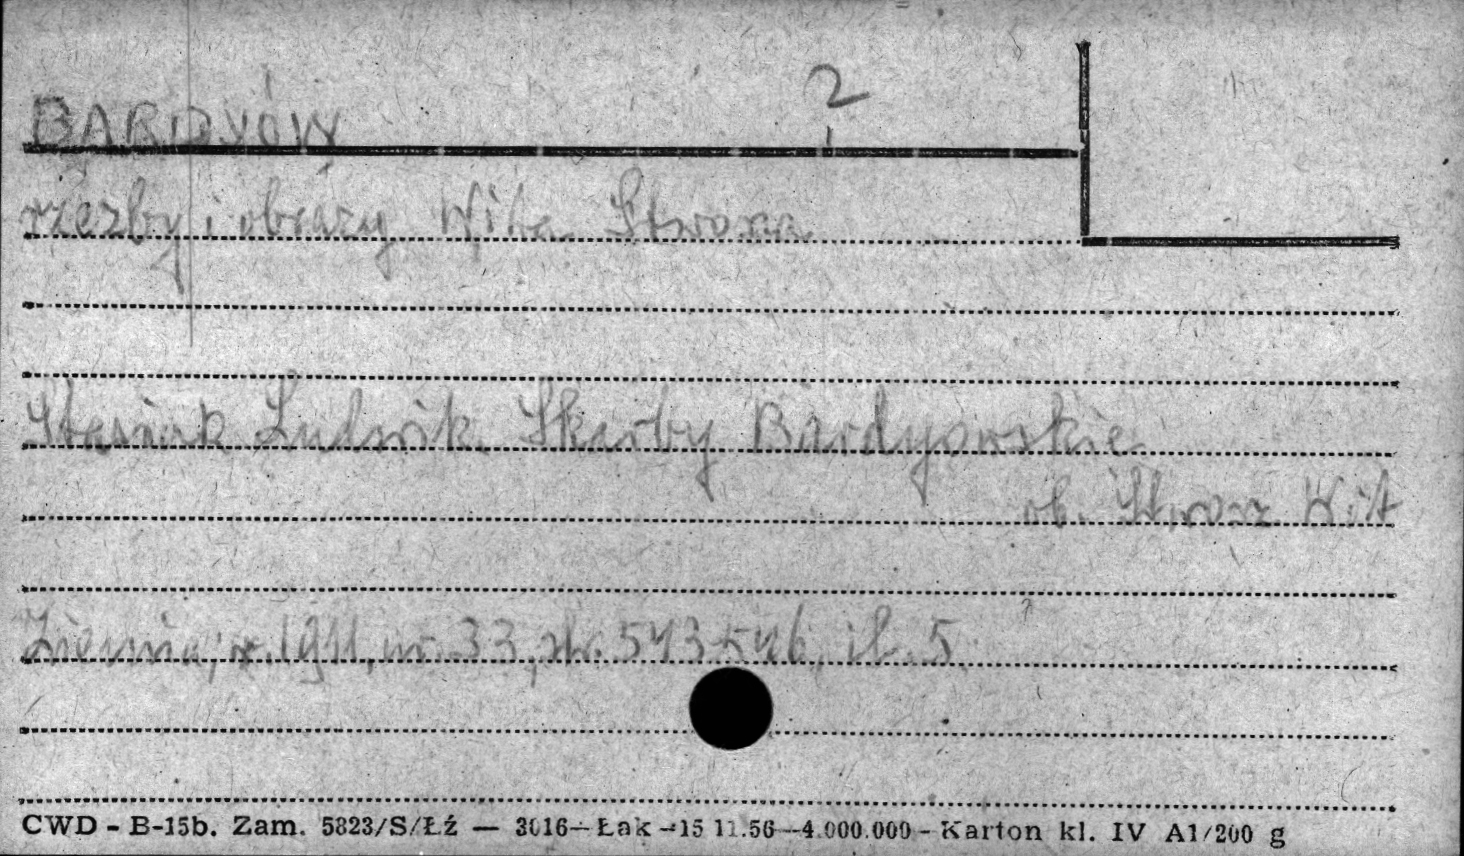 2
BARDYÓW
rzeźby i obrazy Wita Stwosza
Stasiak Ludwik Skarby Bardyowskie
ob. Stwosz Wit
Ziemia, r. 1911, nr. 33, str. 543-546, il. 5
CWD - B-15b. Zam. 5823/S/Łź — 3016 – Łak – 15 11.56 – 4.000.000 – Karton kl. IV A1/200 g